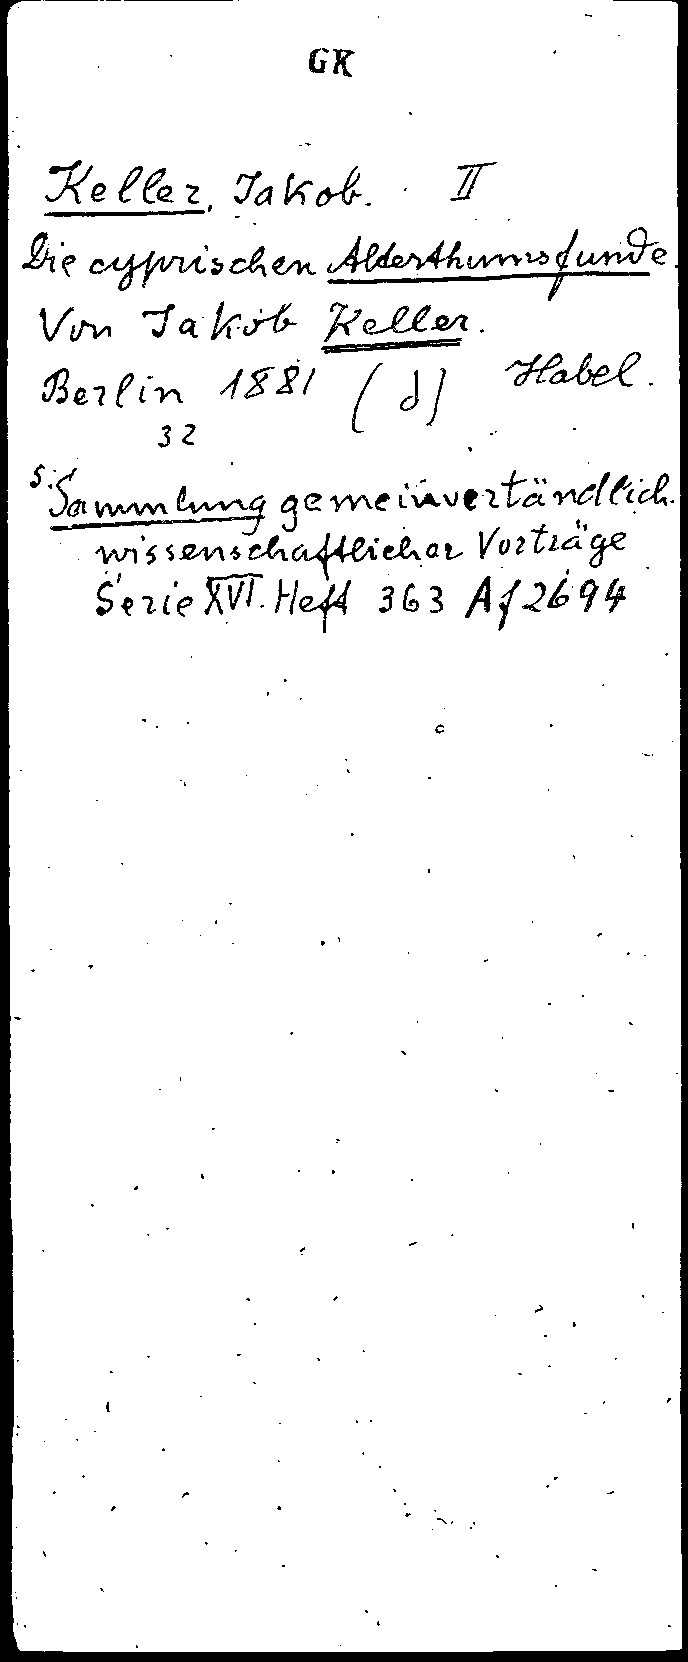 GK
Keller, Jakob. II
Die cyprischen Alterthumsfunde.
Von Jakob Keller.
Berlin 1881 (d) Habel.
32
s. Sammlung gemeinvertändlich.
wissenschaftlicher Vorträge
Serie XVI. Heft 363 Af 2694